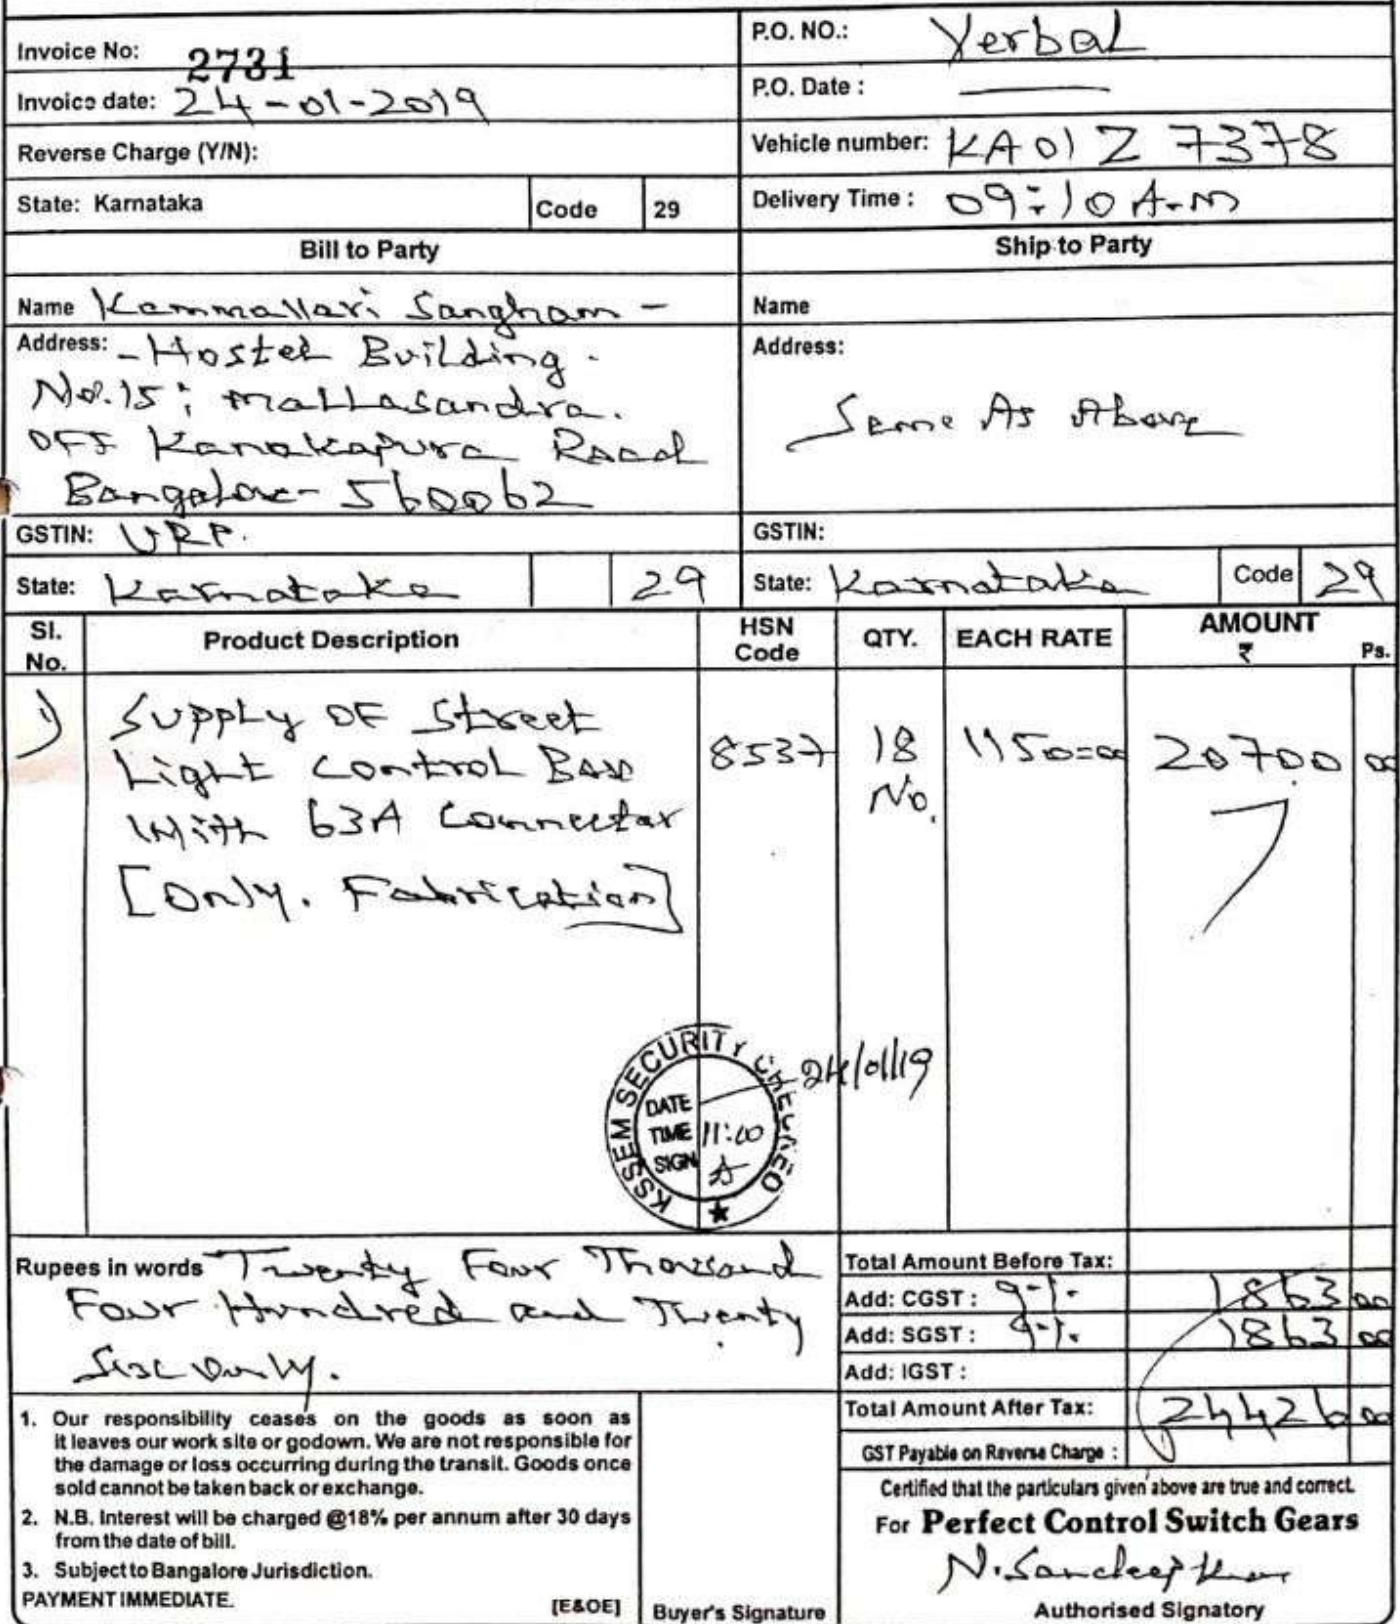 Invoice No: 2731
P.O. NO.: Verbal
Invoice date: 24-01-2019
P.O. Date :
Reverse Charge (Y/N):
Vehicle number: KA 01 Z 7378
State: Karnataka Code 29
Delivery Time : 09:10 A.m
Bill to Party
Ship to Party
Name Kammavari Sangham -
Address: - Hostel Building.
No.15; Mallasandra.
OFF Kanakapura Road
Bangalore- 560062
Name
Address:
Same As Above
GSTIN: URP.
GSTIN:
State: Karnataka 29
State: Karnataka Code 29
Sl. No. Product Description HSN Code QTY. EACH RATE AMOUNT ₹ Ps.
1) Supply OF Street 8537 18 No. 1150=00 20700 00
Light Control Box
With 63A Connector
[Only. Fabrication]
KSSEM SECURITY CHECKED
DATE 24/01/19
TIME 11:00
SIGN
Rupees in words Twenty Four Thousand
Four Hundred and Twenty
Six Only.
Total Amount Before Tax:
Add: CGST : 9-/. 1863 00
Add: SGST : 9-/. 1863 00
Add: IGST :
Total Amount After Tax: 24426 00
GST Payable on Reverse Charge :
1. Our responsibility ceases on the goods as soon as
it leaves our work site or godown. We are not responsible for
the damage or loss occurring during the transit. Goods once
sold cannot be taken back or exchange.
2. N.B. Interest will be charged @18% per annum after 30 days
from the date of bill.
3. Subject to Bangalore Jurisdiction.
PAYMENT IMMEDIATE.
[E&OE]
Buyer's Signature
Certified that the particulars given above are true and correct.
For Perfect Control Switch Gears
N. Sandeep Kumar
Authorised Signatory